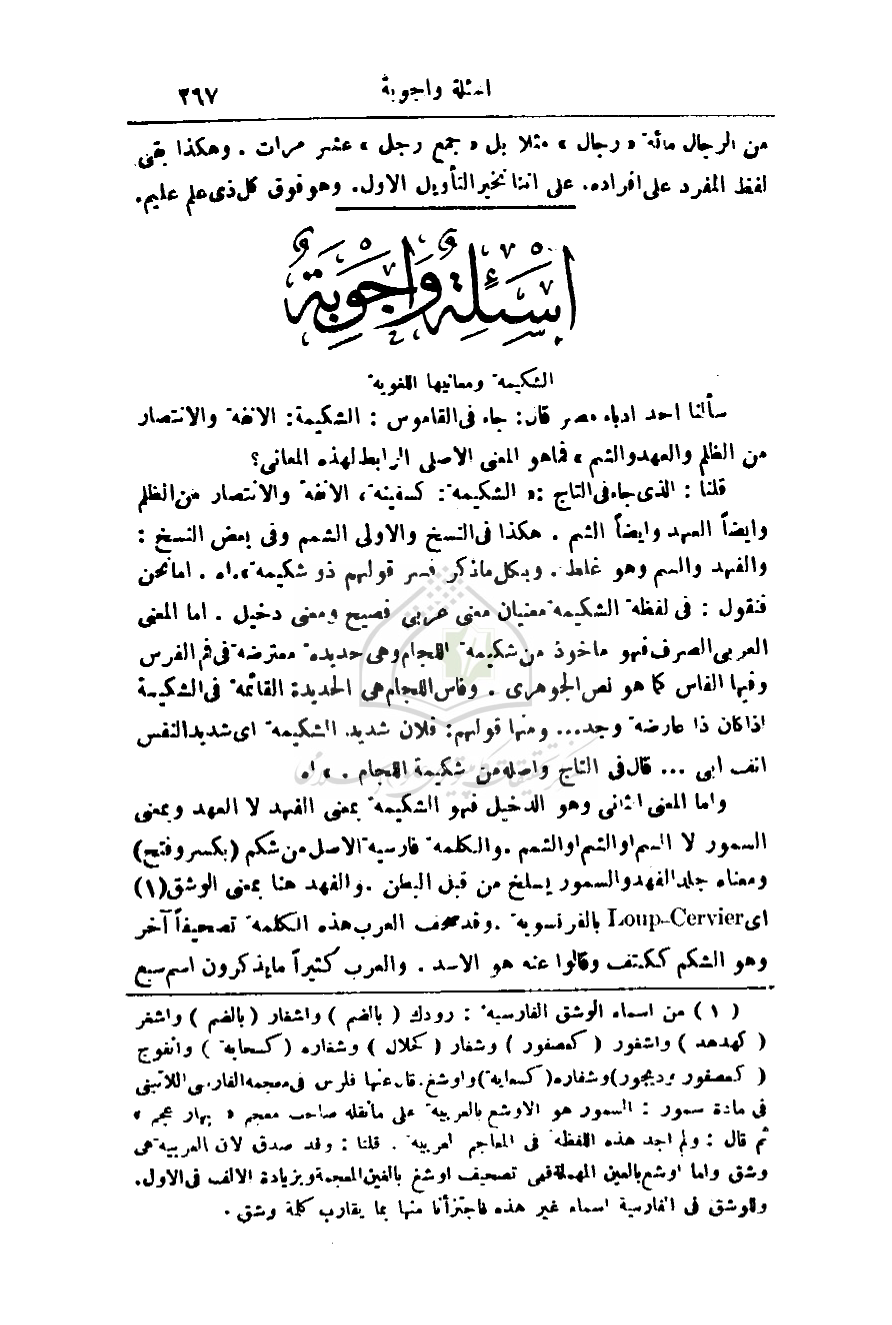 اسئلة واجوبة ٣٩٧
من الرجال مائة « رجال » مثلا بل « جمع رجل » عشر مرات . وهكذا بقى
لفظ المفرد على افراده. على اننا نخير التأويل الاول. وهو فوق كل ذى علم عليم.
اَسْئِلَةٌ وَاَجْوِبَةٌ
الشكيمة ومعانيها اللغوية
سألنا احد ادباء مصر قال: جاء فى القاموس : الشكيمة: الانفة والانتصار
من الظلم والعهد والشم » فما هو المعنى الاصلى الرابط لهذه المعانى؟
قلنا : الذى جاء فى التاج :« الشكيمة: كسفينة، الانفة والانتصار من الظلم
وايضاً العهد وايضاً الشم . هكذا فى النسخ والاولى الشمم وفى بعض النسخ :
والفهد والسم وهو غلط . وبكل ماذكر فسر قولهم ذو شكيمة ».اه . اما نحن
فنقول : فى لفظة الشكيمة معنيان معنى عربى فصيح ومعنى دخيل . اما المعنى
العربى الصرف فهو ماخوذ من شكيمة اللجام وهى حديدة معترضة فى فم الفرس
وفيها الفاس كما هو نص الجوهرى . وفاس اللجام هى الحديدة القائمة فى الشكيمة
اذا كان ذا عارضة وجد... ومنها قولهم: فلان شديد الشكيمة اى شديد النفس
انف ابى ... قال فى التاج واصله من شكيمة اللجام . » اه
واما المعنى الثانى وهو الدخيل فهو الشكيمة بمعنى الفهد لا العهد وبمعنى
السمور لا السم او الشم او الشمم .والكلمة فارسية الاصل من شكم (بكسر وفتح)
ومعناه جلد الفهد والسمور يسلخ من قبل البطن .والفهد هنا بمعنى الوشق(١)
اى Loup-Cervier بالفرنسوية .وقد صحف العرب هذه الكلمة تصحيفاً آخر
وهو الشكم ككتف وقالوا عنه هو الاسد . والعرب كثيراً مايذكرون اسم سبع
( ١ ) من اسماء الوشق الفارسية : رودك ( بالضم ) واشفار (بالضم ) واشفر
( كهدهد ) واشفور ( كعصفور ) وشفار ( كخلال ) وشفاره (كسحابة ) وانفوج
( كعصفور وديجور) وشفاره(كسعاية) واوشغ. قال عنها فلرس فى معجمه الفارسى اللاتينى
فى مادة سمور : السمور هو الاوشع بالعربية على مانقله صاحب معجم « بهار عجم »
ثم قال : ولم اجد هذه اللفظة فى المعاجم العربية . قلنا : وقد صدق لان العربية هى
وشق واما اوشع بالعين المهملة فهى تصحيف اوشغ بالغين المعجمة وبزيادة الالف فى الاول.
وللوشق فى الفارسية اسماء غير هذه فاجتزأنا منها بما يقارب كلمة وشق .